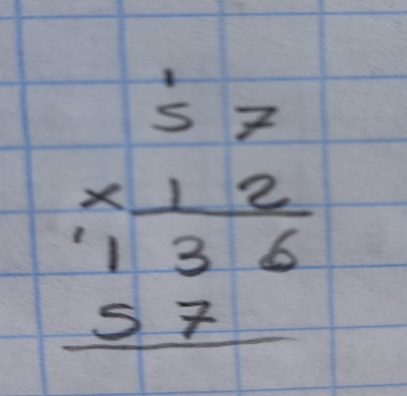 1
57
× 12
'136
57